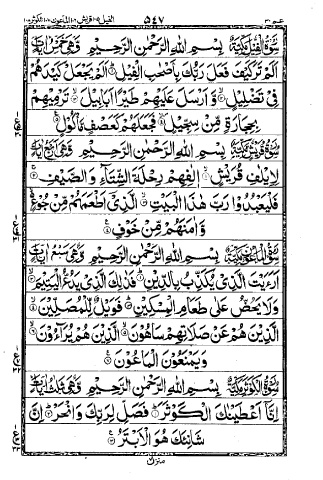 الفيل ١٠٥ قريش ١٠٦ الماعون ١٠٧ الكوثر ١٠٨ ٥٤٧ عم ٣٠
سُوْرَةُ الْفِيْلِ مَكِّيَّةٌ بِسْمِ اللهِ الرَّحْمٰنِ الرَّحِيْمِ وَهِيَ خَمْسُ اٰيَاتٍ
اَلَمْ تَرَ كَيْفَ فَعَلَ رَبُّكَ بِاَصْحٰبِ الْفِيْلِ ۝١ اَلَمْ يَجْعَلْ كَيْدَهُمْ
فِيْ تَضْلِيْلٍ ۝٢ وَّاَرْسَلَ عَلَيْهِمْ طَيْرًا اَبَابِيْلَ ۝٣ تَرْمِيْهِمْ
بِحِجَارَةٍ مِّنْ سِجِّيْلٍ ۝٤ فَجَعَلَهُمْ كَعَصْفٍ مَّاْكُوْلٍ ۝٥
سُوْرَةُ قُرَيْشٍ مَكِّيَّةٌ بِسْمِ اللهِ الرَّحْمٰنِ الرَّحِيْمِ وَهِيَ اَرْبَعُ اٰيَاتٍ
لِاِيْلٰفِ قُرَيْشٍ ۝١ اٖلٰفِهِمْ رِحْلَةَ الشِّتَآءِ وَالصَّيْفِ ۝٢
فَلْيَعْبُدُوْا رَبَّ هٰذَا الْبَيْتِ ۝٣ الَّذِيْٓ اَطْعَمَهُمْ مِّنْ جُوْعٍ
وَّاٰمَنَهُمْ مِّنْ خَوْفٍ ۝٤
سُوْرَةُ الْمَاعُوْنِ مَكِّيَّةٌ بِسْمِ اللهِ الرَّحْمٰنِ الرَّحِيْمِ وَهِيَ سَبْعُ اٰيَاتٍ
اَرَءَيْتَ الَّذِيْ يُكَذِّبُ بِالدِّيْنِ ۝١ فَذٰلِكَ الَّذِيْ يَدُعُّ الْيَتِيْمَ ۝٢
وَلَا يَحُضُّ عَلٰى طَعَامِ الْمِسْكِيْنِ ۝٣ فَوَيْلٌ لِّلْمُصَلِّيْنَ ۝٤
الَّذِيْنَ هُمْ عَنْ صَلَاتِهِمْ سَاهُوْنَ ۝٥ الَّذِيْنَ هُمْ يُرَآءُوْنَ ۝٦
وَيَمْنَعُوْنَ الْمَاعُوْنَ ۝٧
سُوْرَةُ الْكَوْثَرِ مَكِّيَّةٌ بِسْمِ اللهِ الرَّحْمٰنِ الرَّحِيْمِ وَهِيَ ثَلٰثُ اٰيَاتٍ
اِنَّآ اَعْطَيْنٰكَ الْكَوْثَرَ ۝١ فَصَلِّ لِرَبِّكَ وَانْحَرْ ۝٢ اِنَّ
شَانِئَكَ هُوَ الْاَبْتَرُ ۝٣